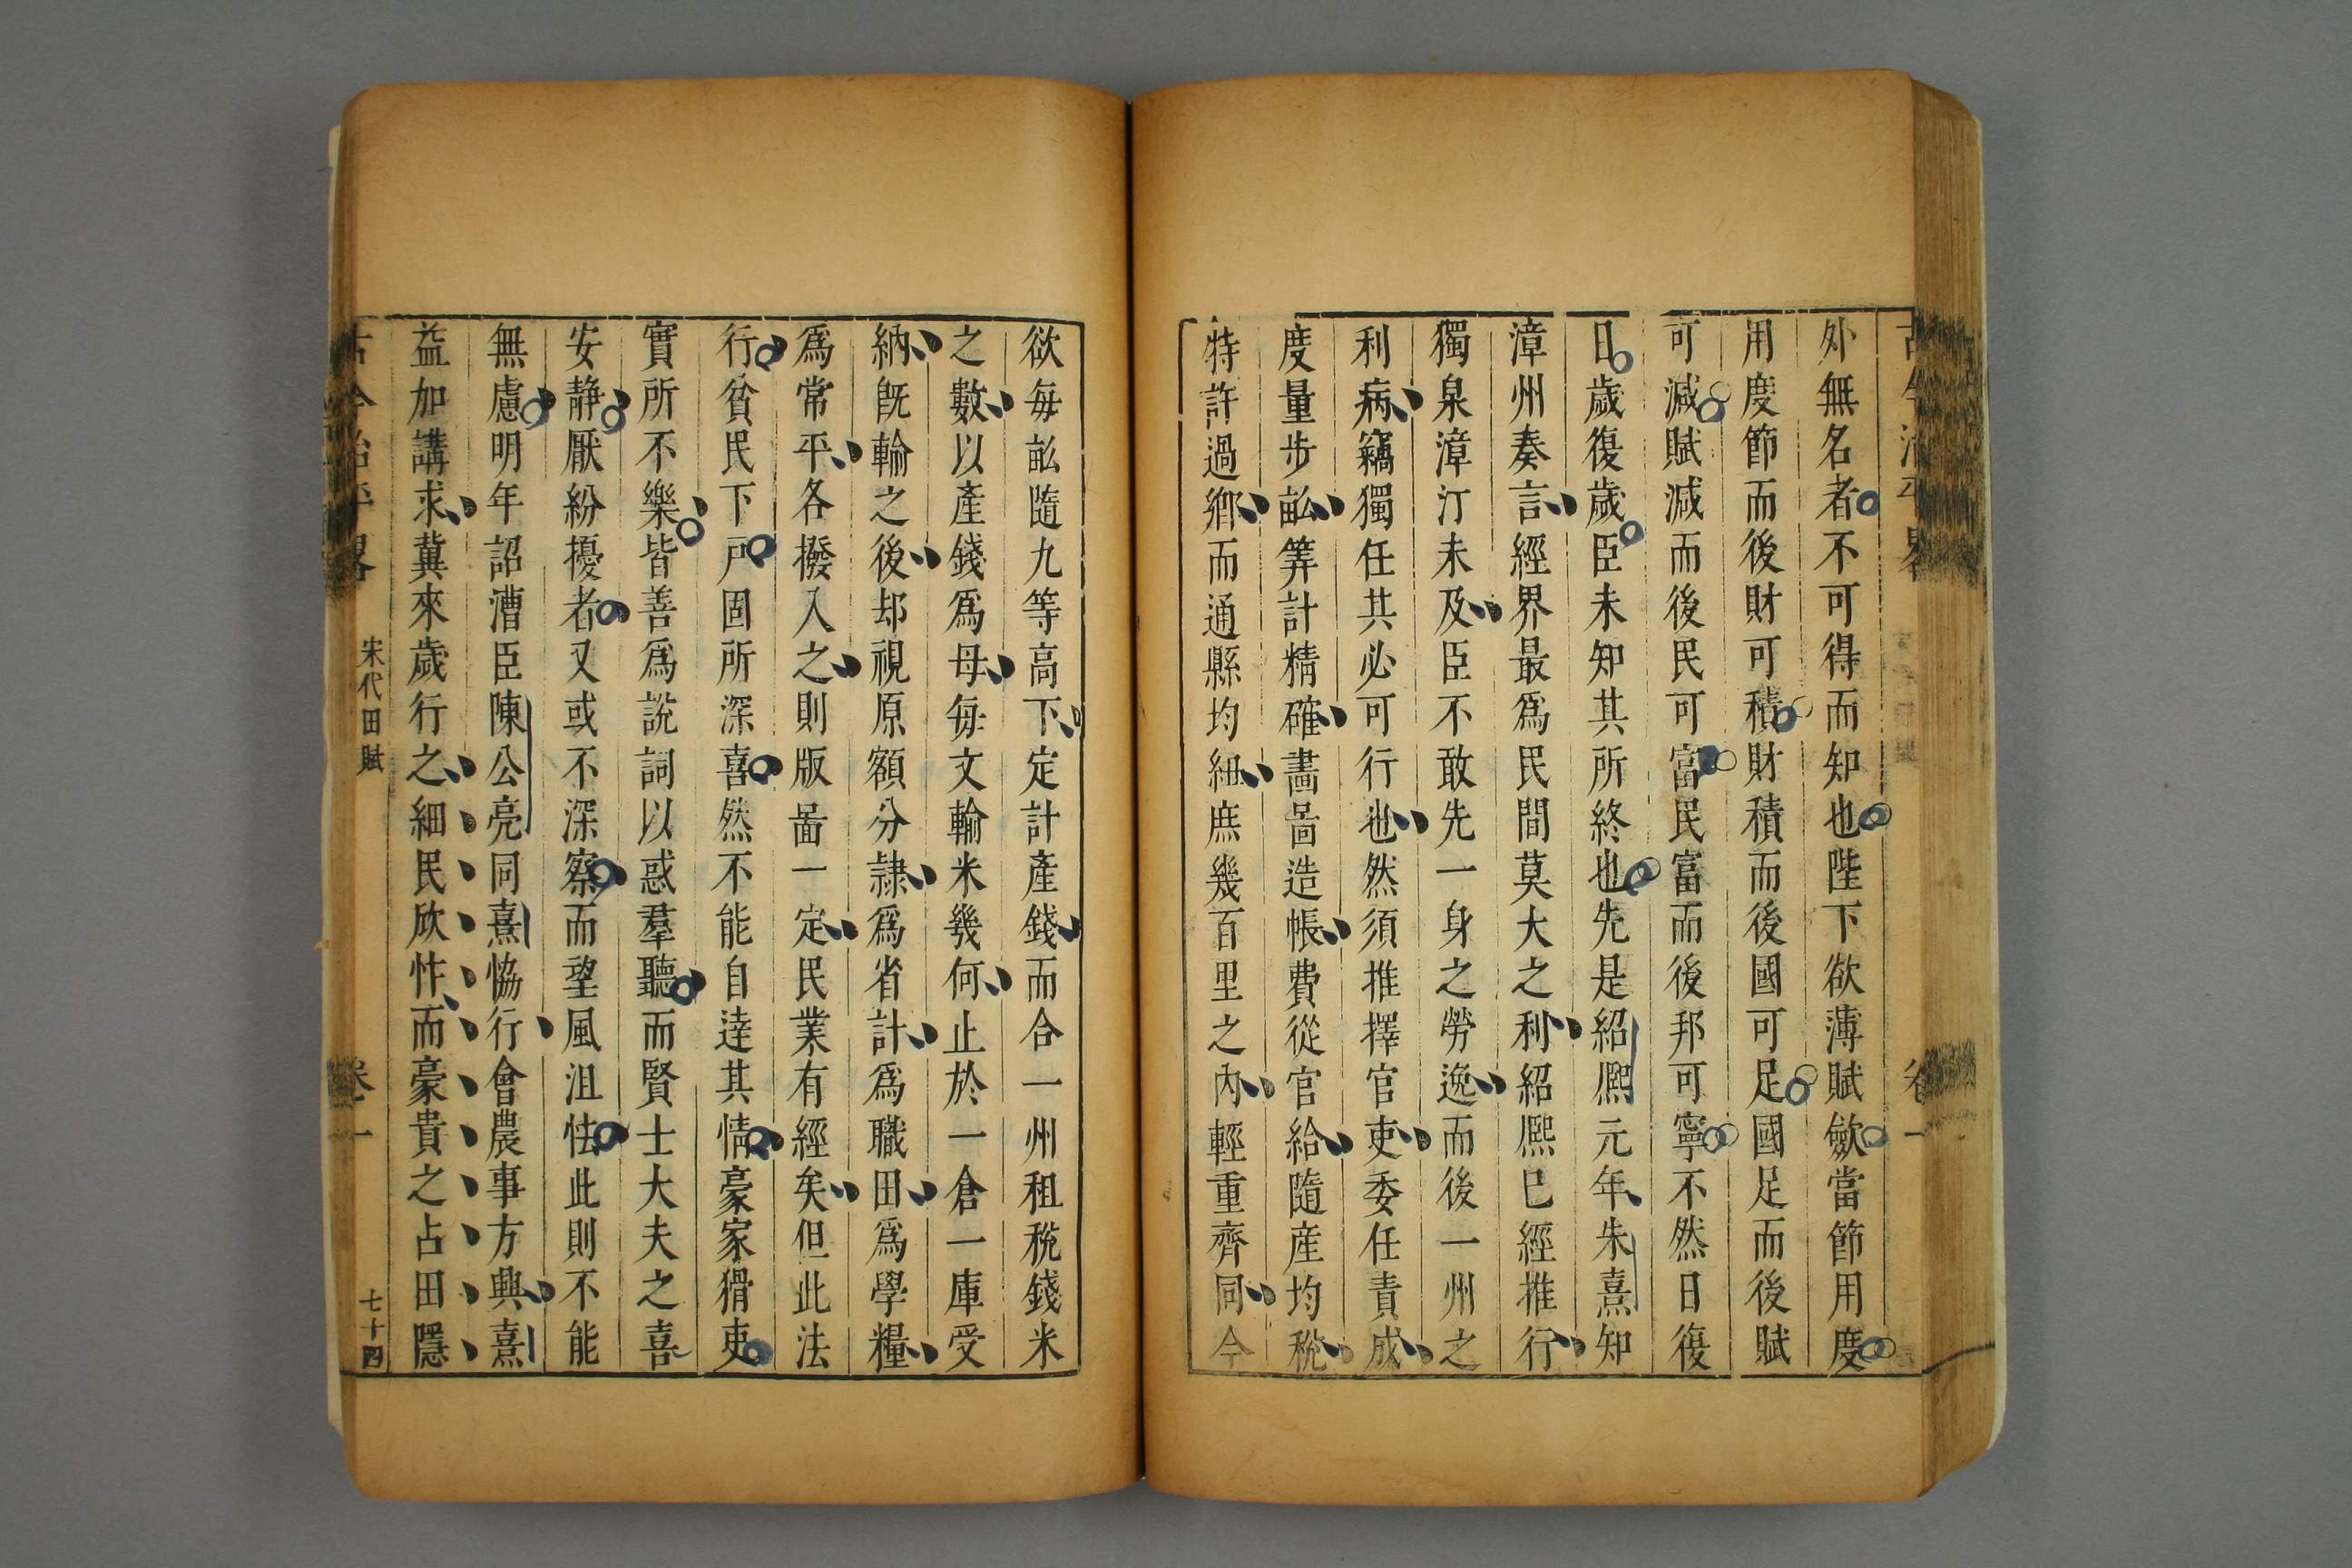 外無名者不可得而知也陛下欲薄賦斂當節用度
用度節而後財可積財積而後國可足國足而後賦
可減賦減而後民可富民富而後邦可寧不然日復
日歲復歲臣未知其所終也先是紹熈元年朱熹知
漳州奏言經界最爲民間莫大之利紹熈巳經推行
獨泉漳汀未及臣不敢先一身之勞逸而後一州之
利病竊獨任其必可行也然須推擇官吏委任責成
度量步畝筭計精確畵啚造帳費從官給隨産均稅
特許過鄉而通縣均紐庶幾百里之內輕重齊同今
欲每畝隨九等高下定計產錢而合一州租稅錢米
之數以產錢爲母每文輸米幾何止於一倉一庫受
納旣輸之後却視原額分隷爲省計爲職田爲學糧
爲常平各撥入之則版啚一定民業有經矣但此法
行貧民下戸固所深喜然不能自逹其情豪家猾吏
實所不樂皆善爲說詞以惑羣聽而賢士大夫之喜
安静厭紛擾者又或不深察而望風沮怯此則不能
無慮明年詔漕臣陳公亮同熹恊行會農事方興熹
益加講求冀來歲行之細民欣忭而豪貴之占田隱
古今治平畧
宋代田賦
卷一
七十四